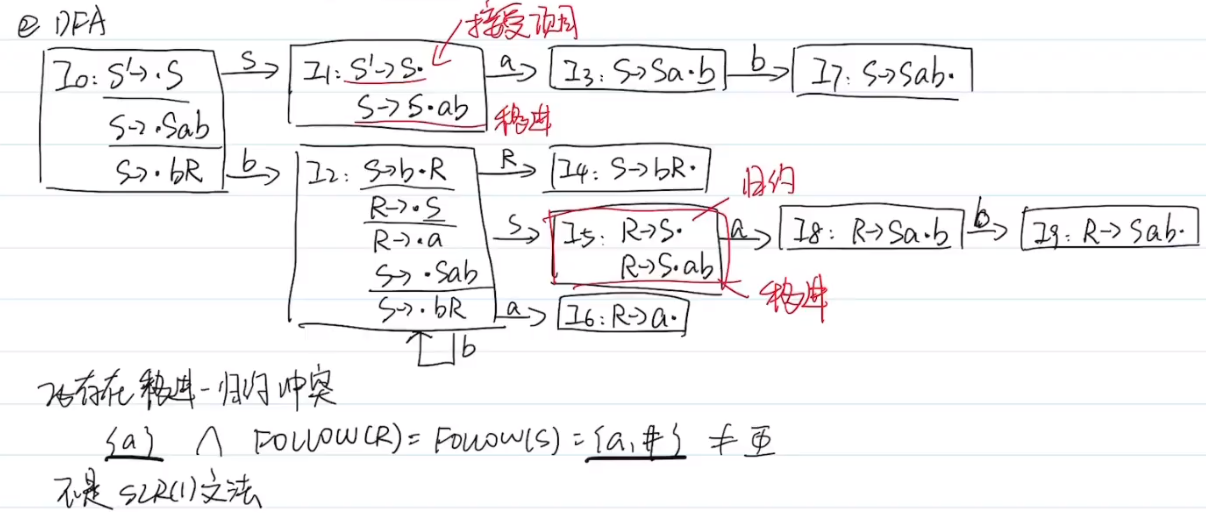 ② DFA
接受项目
I0: S'→·S
S→·Sab
S→·bR
S
I1: S'→S·
S→S·ab
移进
a
I3: S→Sa·b
b
I7: S→Sab·
b
I2: S→b·R
R→·S
R→·a
S→·Sab
S→·bR
R
I4: S→bR·
归约
S
I5: R→S·
R→S·ab
移进
a
I8: R→Sa·b
b
I9: R→Sab·
a
I6: R→a·
b
I5存在移进-归约冲突
{a} ∩ FOLLOW(R)=FOLLOW(S)={a,#} ≠ Φ
不是SLR(1)文法